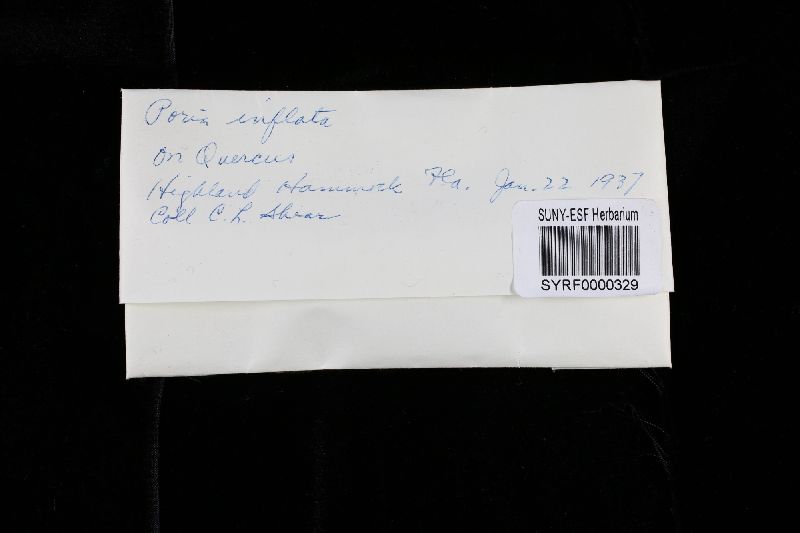 Poria inflata
on Quercus
Highland Hammock Fla. Jan. 22 1937
Coll C. L. Shear
SUNY-ESF Herbarium
SYRF0000329